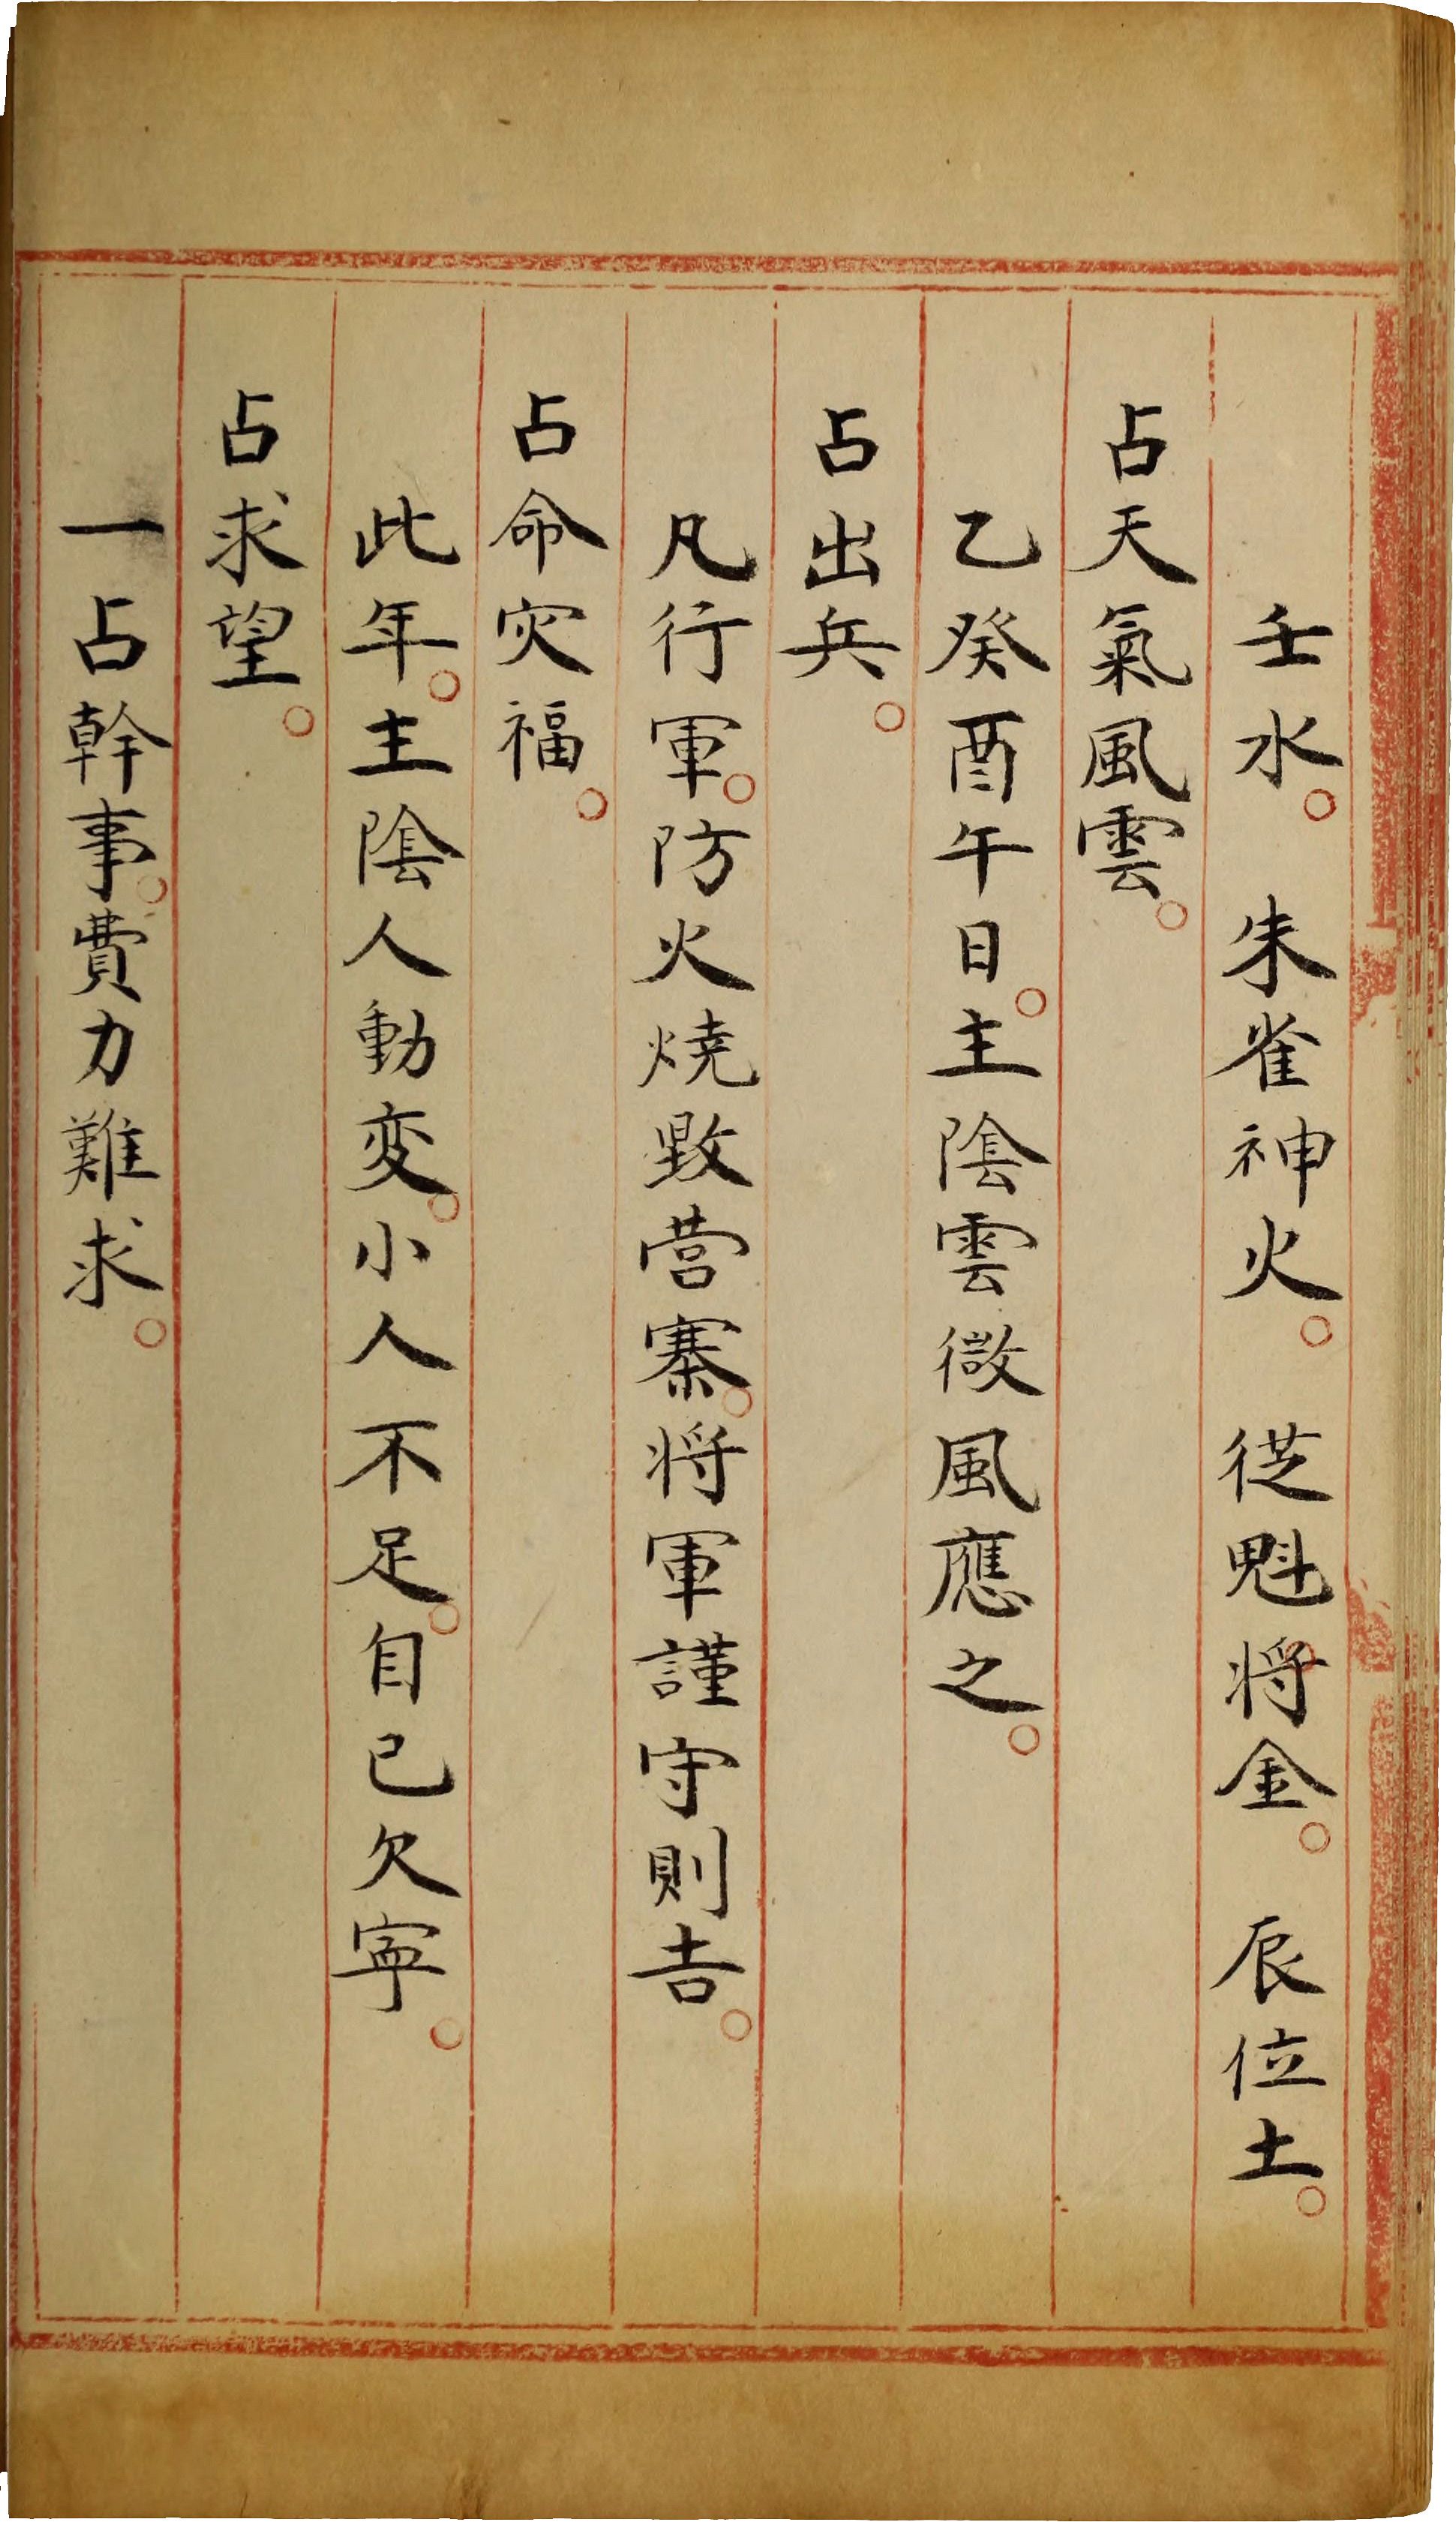 壬水。朱雀神火。從魁将金。辰位土。
占天氣風雲。
乙癸酉午日。主陰雲微風應之。
占出兵。
凡行軍。防火燒毀营寨。将軍謹守則吉。
占命灾福。
此年。主陰人動変。小人不足。自己欠寧。
占求望。
一占幹事。費力難求。